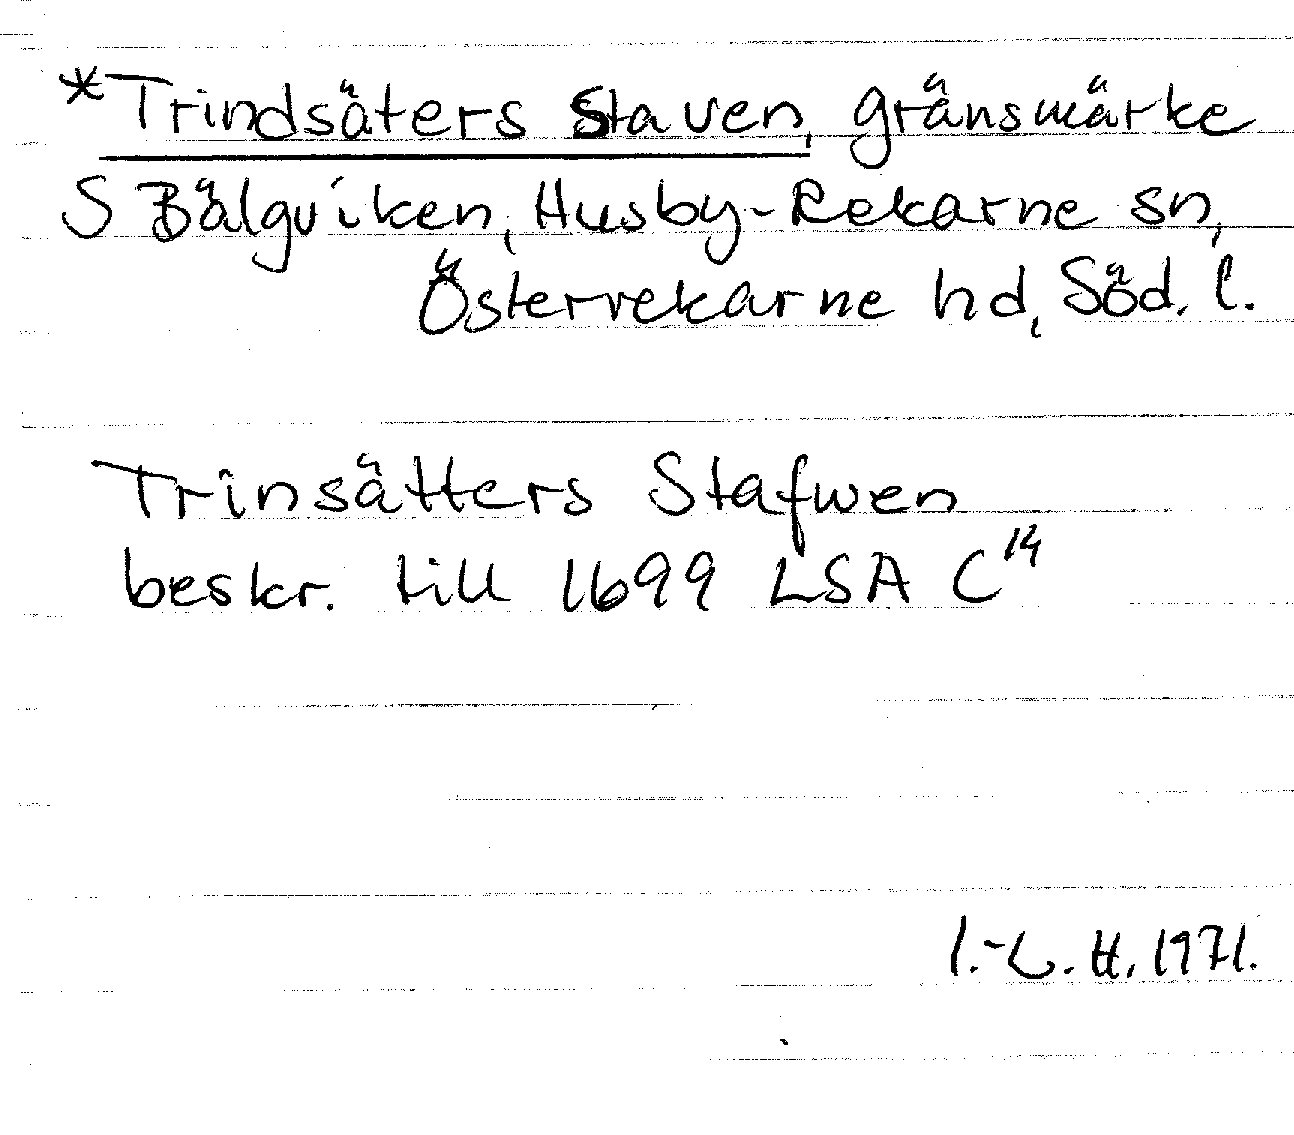 *Trindsäters Staven, gränsmärke
S Bälgviken, Husby-Rekarne sn,
Österrekarne hd, Söd. l.
Trinsätters Stafwen
beskr. till 1699 LSA C¹⁴
I.-L. H. 1971.